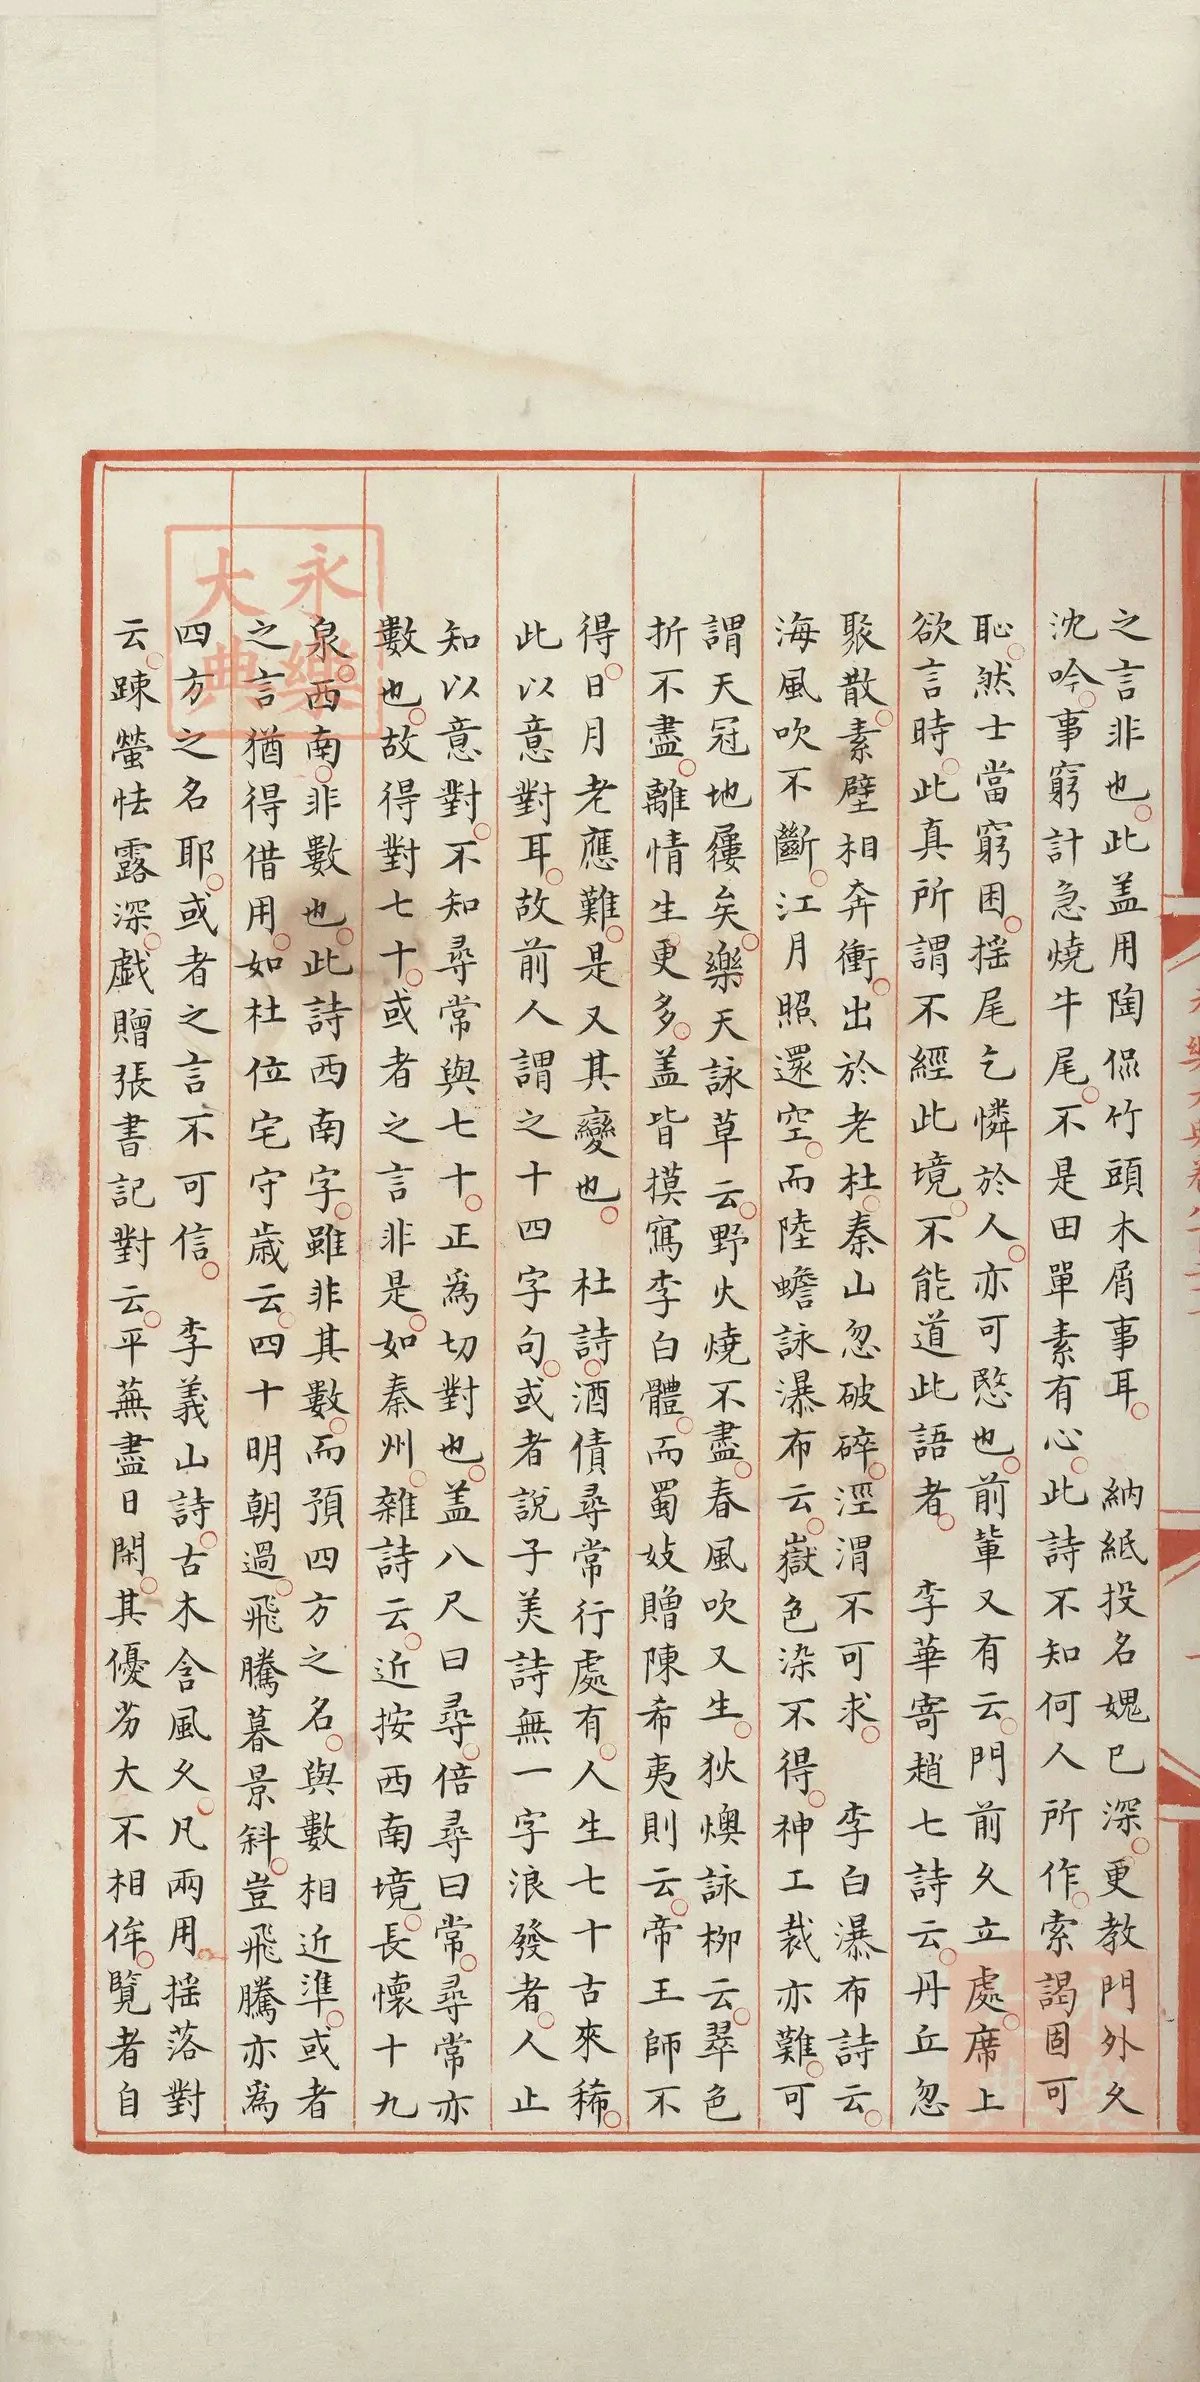 之言非也此盖用陶侃竹頭木屑事耳 納紙投名媿已深更教門外久
沈吟事窮計急燒牛尾不是田單素有心此詩不知何人所作索謁固可
恥然士當窮困揺尾乞憐於人亦可愍也前輩又有云門前久立處席上
欲言時此真所謂不經此境不能道此語者 李華寄趙七詩云丹丘忽
聚散素壁相奔衝出於老杜秦山忽破碎涇渭不可求 李白瀑布詩云
海風吹不斷江月照還空而陸蟾詠瀑布云嶽色染不得神工裁亦難可
謂天冠地屨矣樂天詠草云野火燒不盡春風吹又生狄燠詠柳云翠色
折不盡離情生更多盖皆摸寫李白體而蜀妓贈陳希夷則云帝王師不
得日月老應難是又其變也 杜詩酒債尋常行處有人生七十古來稀
此以意對耳故前人謂之十四字句或者說子美詩無一字浪發者人止
知以意對不知尋常與七十正爲切對也盖八尺曰尋倍尋曰常尋常亦
數也故得對七十或者之言非是如秦州雜詩云近按西南境長懷十九
泉西南非數也此詩西南字雖非其數而預四方之名與數相近準或者
之言猶得借用如杜位宅守歲云四十明朝過飛騰暮景斜豈飛騰亦爲
四方之名耶或者之言不可信 李義山詩古木含風久凡兩用揺落對
云踈螢怯露深戯贈張書記對云平蕪盡日閑其優劣大不相侔覽者自
永樂大典